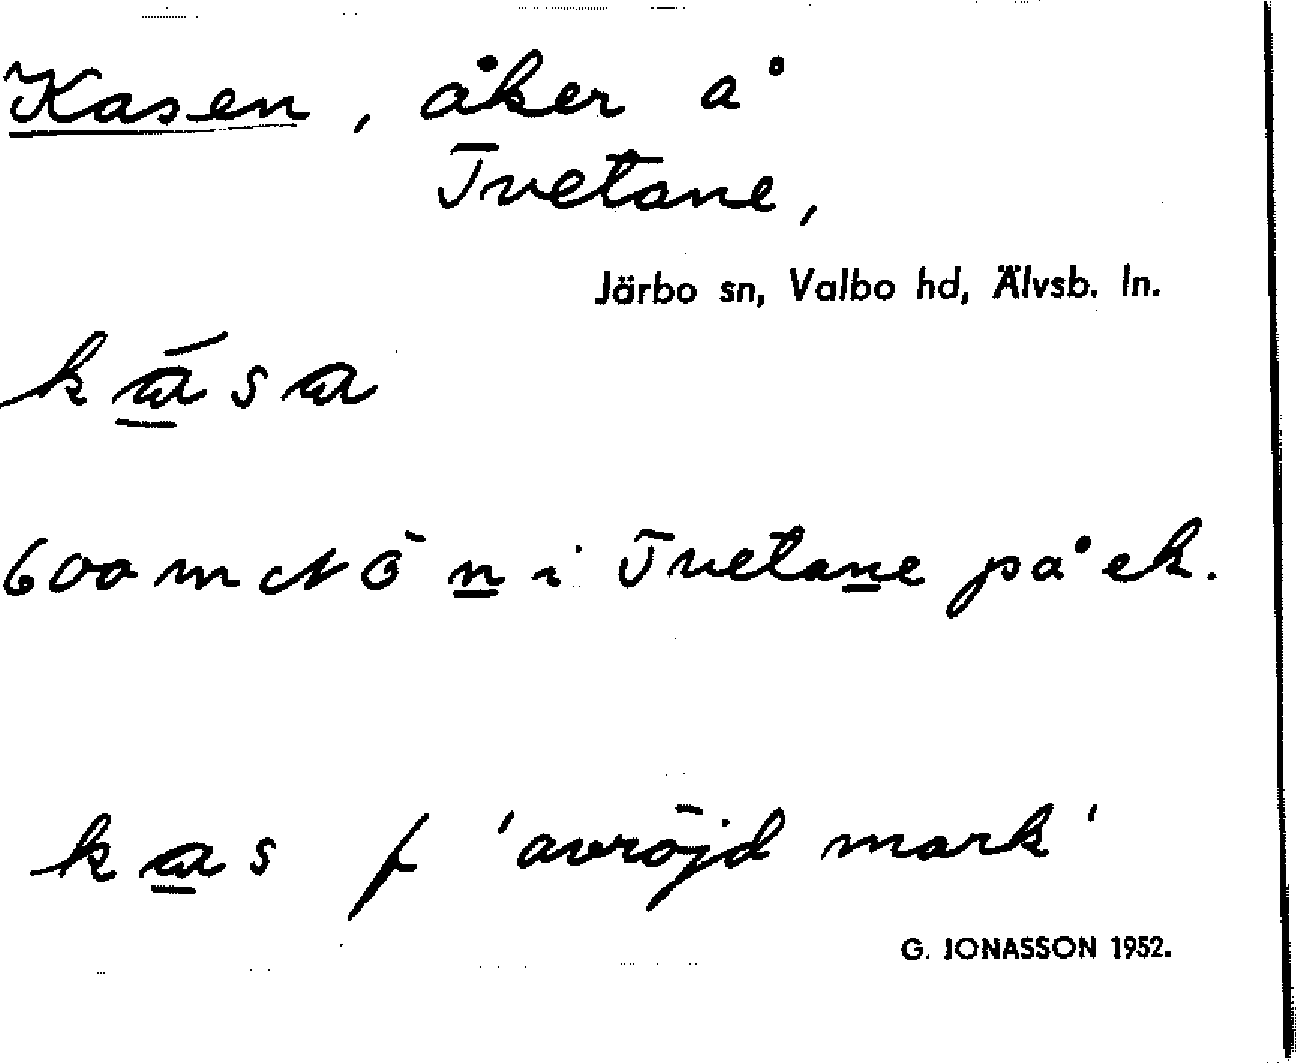 Kasen, åker å
Tvetane,
Järbo sn, Valbo hd, Älvsb. ln.
ká̱sa
600 m NÖ n̲ i Tvetan̲e på ek.
ka̲s f 'avröjd mark'
G. JONASSON 1952.